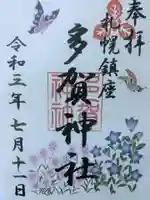 奉拝
札幌鎮座
多賀神社
令和三年七月十一日